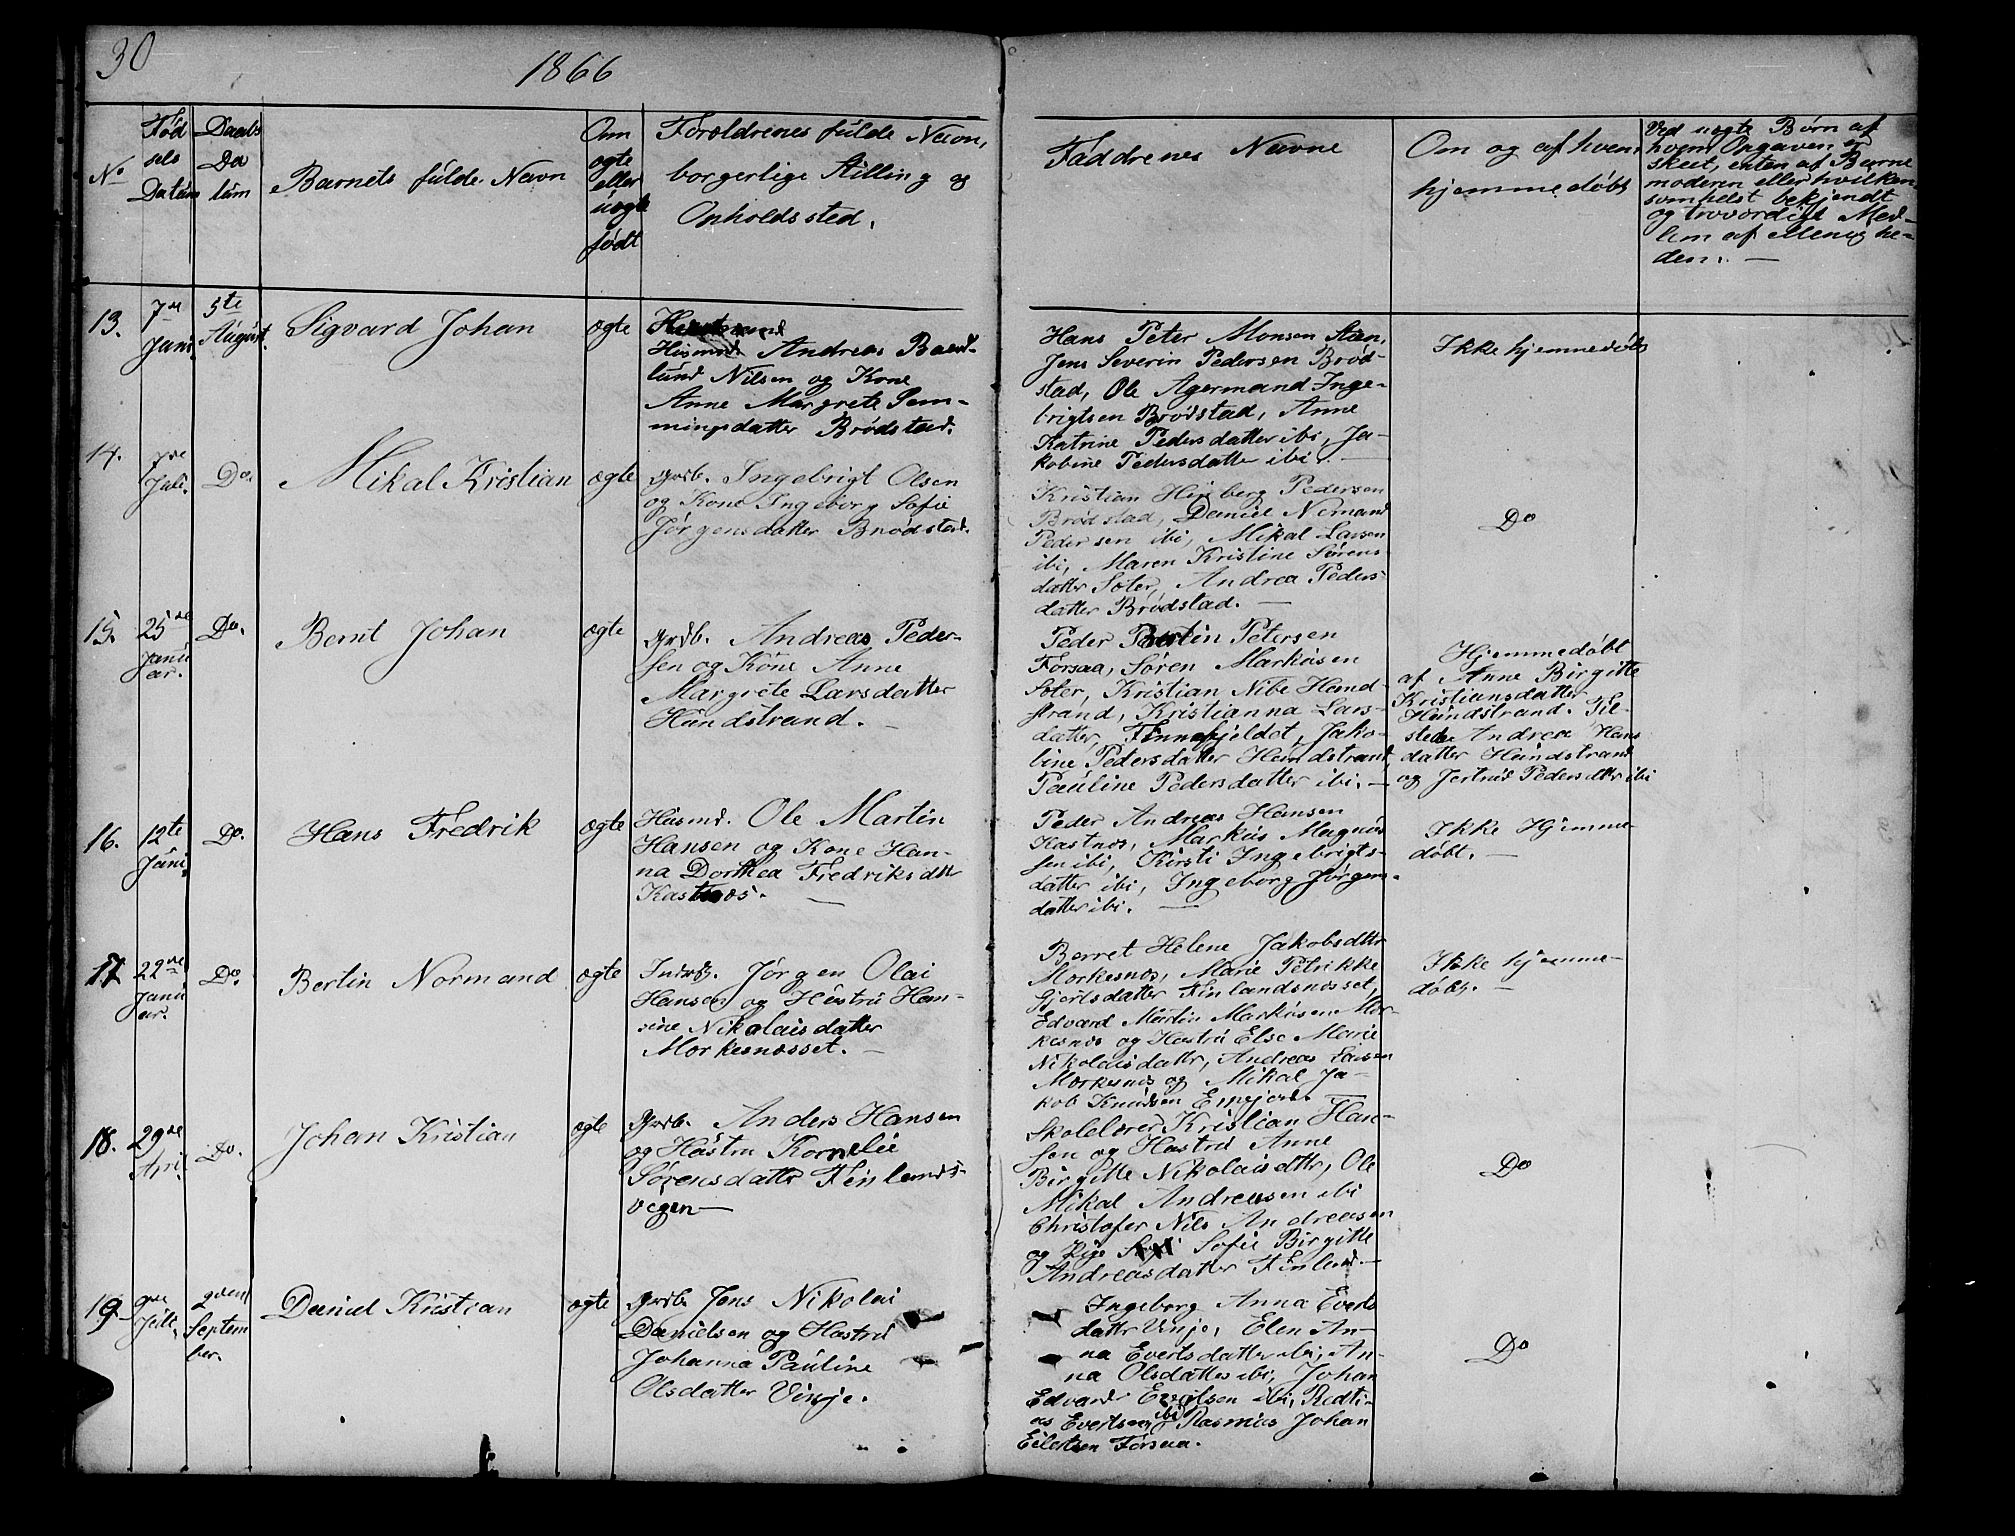 30
1866
No
Fød
sels
Datum
Daabs
Da
tum
Barnets fulde Navn
Om
ægte
eller
uægte
født
Forældrenes fulde Navn,
borgerlige Stilling og
Opholdssted.
Faddrenes Navne
Om og af hvem
hjemmedøbt
Ved uægte Børn af
hvem Opgaven er
skeet, enten af Barne
moderen eller hvilken
somhelst bekjendt
og troværdigt Med-
lem af Menighe-
den. —
13.
7de
Juni.
5te
August.
Sigvard Johan
ægte
Husmd. Andreas
lund Nilsen og Kone
Anne Margrete Sem-
mingsdatter Brødstad.
Hans Peter Monsen Steen,
Jens Severin Pedersen Brød-
stad, Ole Agermand Inge-
brigtsen Brødstad, Anne
Katrine Pedersdatter ibi, Ja-
kobine Pedersdatter ibi. —
Ikke hjemmedøbt
14.
7de
Juli.
Do.
Mikal Kristian
ægte
Grdb. Ingebrigt Olsen
og Kone Ingeborg Sofie
Jørgensdatter Brødstad.
Kristian Hirberg Pedersen
Brødstad, Daniel Normand
Pedersen ibi, Mikal Larsen
ibi, Maren Kristine Sørens-
datter Soter, Andrea Peders-
datter Brødstad. —
Do
15.
25de
Janu
ar.
Do.
Bernt Johan
ægte
Grdb. Andreas Peder-
sen og Kone Anne
Margrete Larsdatter
Hundstrand. —
Peder Bertin Petersen
Forsaa, Søren Markusen
Soter, Kristian Nibe Hund-
strand, Kristianna Lars-
datter, Finnefjeldet, Jako-
bine Pedersdatter Hundstrand
Pauline Pedersdatter ibi. —
Hjemmedøbt
af Anne Birgitte
Kristiansdatter
Hundstrand. Til-
stede Andrea Hans
datter Hundstrand
og Jertrud Pedersdtr ibi
16.
12te
Juni.
Do.
Hans Fredrik
ægte
Husmd. Ole Martin
Hansen og Kone Han-
na Dorthea Fredriksdtr
Kastnæs. —
Peder Andreas Hansen
Kastnæs, Markus Magnus
sen ibi, Kirsti Ingebrigts-
datter ibi, Ingeborg Jørgens-
datter ibi. —
Ikke Hjemme-
døbt. —
17.
22de
Janu
ar.
Do.
Bertin Normand
ægte
Indrst. Jørgen Olai
Hansen og Hustru Han-
sine Nikolaisdatter
Morkesnæsset. —
Berret Helene Jakobsdttr
Morkesnæs, Marie Petrikke
Gjertsdatter Finlandsnæsset,
Edvard Martin Markusen Mor-
kesnæs og Hustru Else Marie
Nikolaisdattr, Andreas Larsen
Morkesnæs og Mikal Ja-
kob Knudsen
Ikke hjemme-
døbt. —
18.
29de
Apri
Do.
Johan Kristian
ægte
Grdb. Anders Hansen
og Hustru Kornelie
Sørensdattr Finlands-
vegen —
Skolelærer Kristian Han-
sen og Hustru Anne
Birgitte Nikolaisdttr, Ole
Mikal Andreasen ibi
Christofer Nils Andreasen
og Pige Sofie Birgitte
Andreasdatter Finland. —
Do
19.
9de
Juli.
2den
Septem
ber.
Daniel Kristian
ægte
Grdb. Jens Nikolai
Danielsen og Hustru
Johanna Pauline
Olsdatter Vinje.
Ingeborg Anna Everts
dattr Vinje, Elen An-
na Evertsdatter ibi, An-
na Olsdatter ibi, Johan
Edvard ibi,
as Evertsen ibi Rasmus Johan
Eilertsen Forsaa.
Do